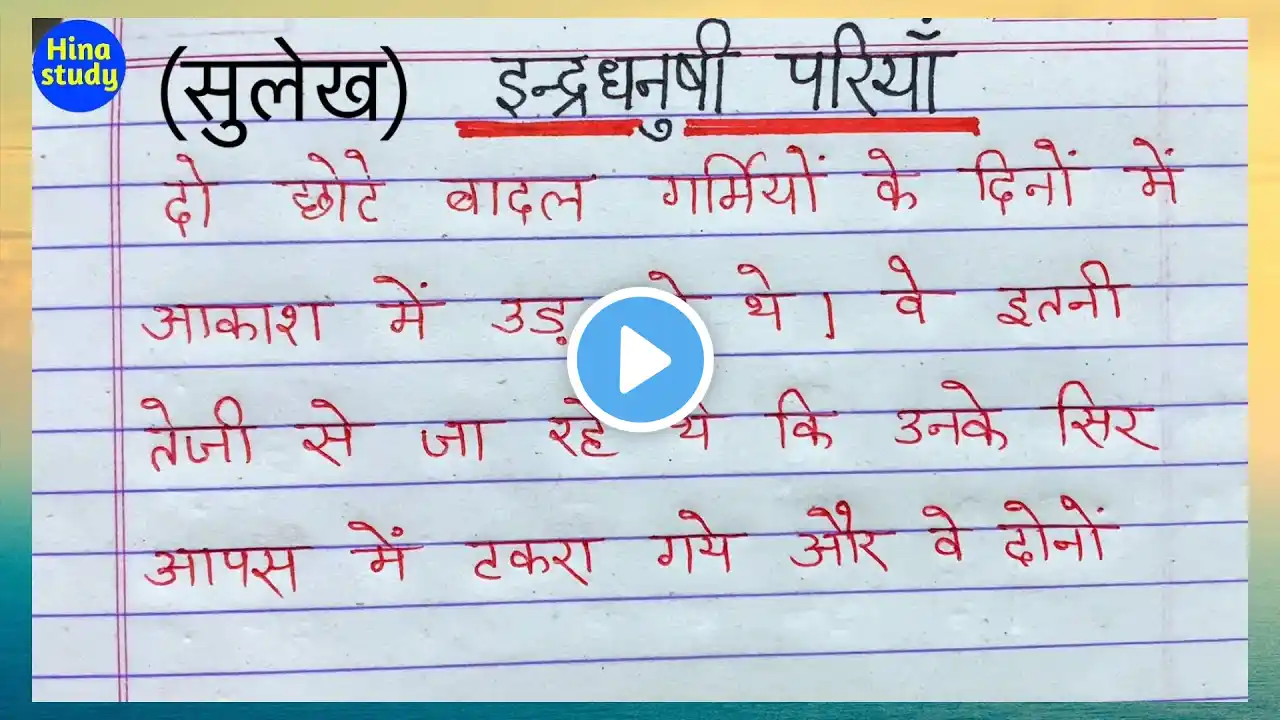 Hina
study
(सुलेख) इन्द्रधनुषी परियाँ
दो छोटे बादल गर्मियों के दिनों में
आकाश में उड़ थे। वे इतनी
तेजी से जा रहे थे कि उनके सिर
आपस में टकरा गये और वे दोनों